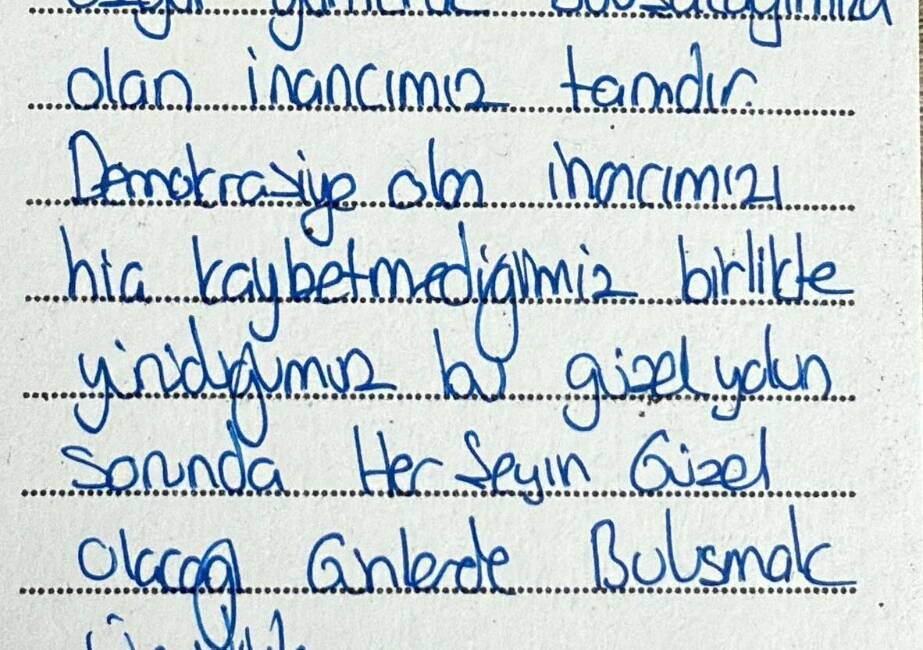 olan inancımız tamdır.
Demokrasiye olan inancımızı
hiç kaybetmediğimiz birlikte
yürüdüğümüz bu güzel yolun
sonunda Her Şeyin Güzel
Olacağı Günlerde Buluşmak